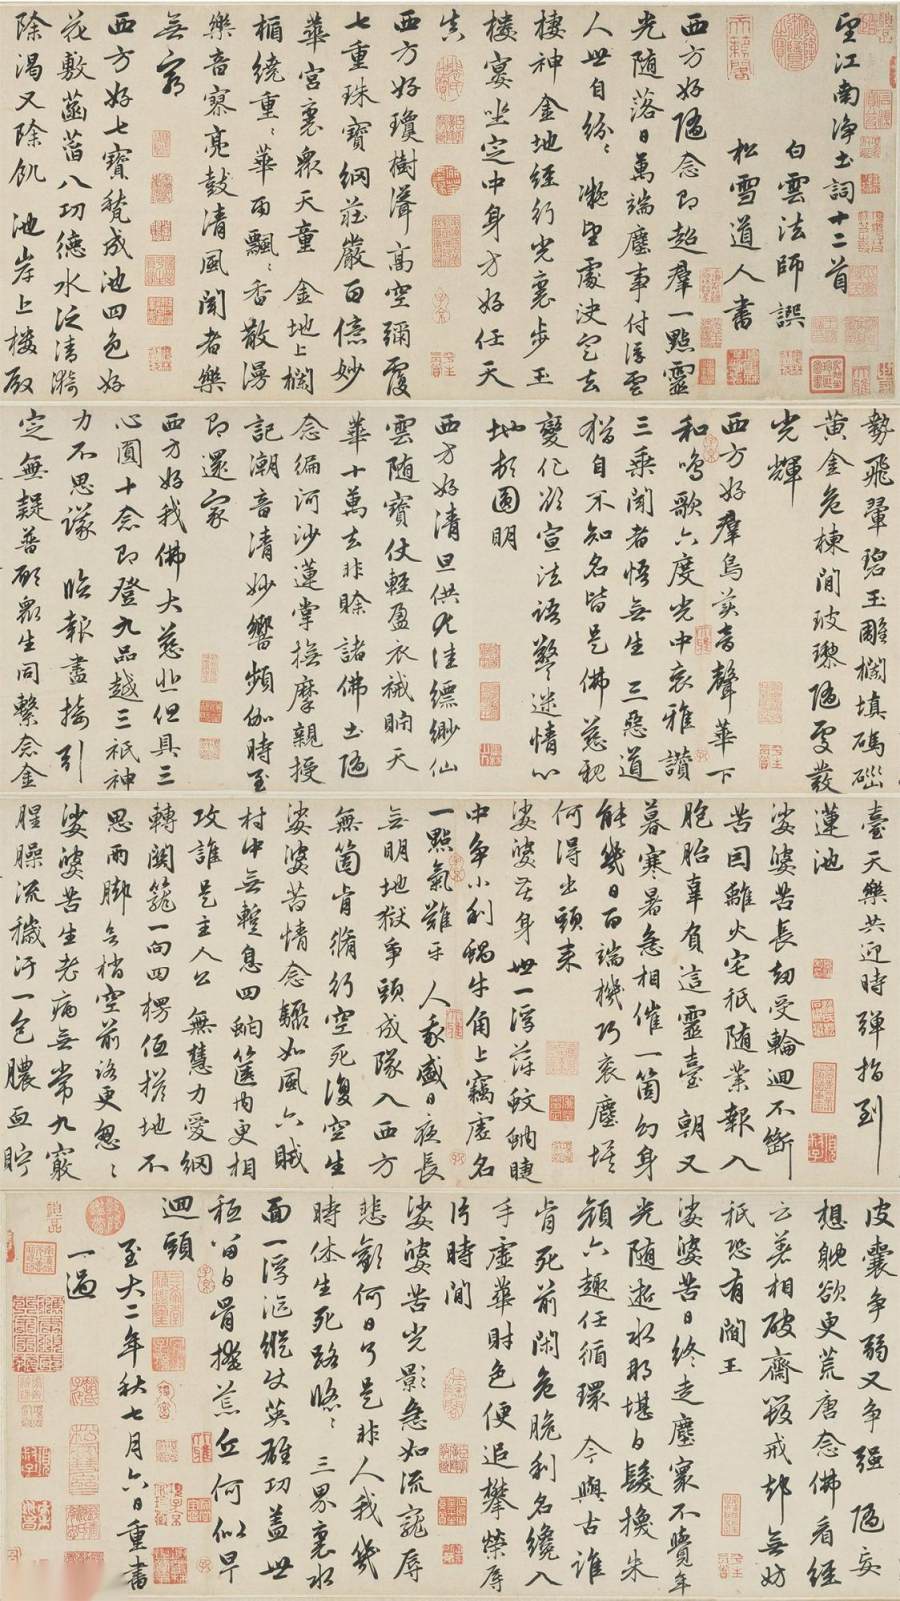 望江南淨土詞十二首
白雲法師譔
松雪道人書
西方好隨念即超群一點靈
光隨落日萬端塵事付浮雲
人世自紛〻凝望處決定去
棲神金地經行光裏步玉
樓宴坐定中身方好任天
真
西方好瓊樹聳高空彌覆
七重珠寶網莊嚴百億妙
華宮裏衆天童金地上欄
楯繞重〻華雨飄〻香散漫
樂音寥亮鼓清風聞者樂
無窮
西方好七寶甃成池四色好
花敷菡萏八功德水泛清漪
除渴又除飢池岸上樓殿
勢飛翬碧玉雕欄填碼碯
黃金危棟間玻瓈隨處發
光輝
西方好群鳥美音聲華下
和鳴歌六度光中哀雅讚
三乘聞者悟無生三惡道
猶自不知名皆是佛慈親
變化欲宣法語警迷情心
地頓圓明
西方好清旦供尤佳縹緲仙
雲隨寶仗輕盈衣祴貯天
華十萬去非賒諸佛土隨
念徧河沙蓮掌撫摩親授
記潮音清妙響頻伽時至
即還家
西方好我佛大慈悲但具三
心圓十念即登九品越三祇神
力不思議臨報盡接引
定無疑普願衆生同繫念金
臺天樂共迎時彈指到
蓮池
娑婆苦長劫受輪迴不斷
苦因離火宅祇隨業報入
胞胎辜負這靈臺朝又
暮寒暑急相催一箇幻身
能幾日百端機巧衮塵埃
何得出頭來
娑婆苦身世一浮萍蚊蚋睫
中爭小利蝸牛角上竊虛名
一點氣難平人我盛日夜長
無明地獄爭頭成隊入西方
無箇肯脩行空死復空生
娑婆苦情念驟如風六賊
村中無暫息四蛇篋內更相
攻誰是主人公無慧力愛網
轉關籠一向四楞伍搭地不
思兩脚無梢空前路更怱〻
娑婆苦生老病無常九竅
腥臊流穢汙一包膿血貯
皮囊爭弱又爭強隨妄
想躭欲更荒唐念佛看經
云著相破齋毀戒却無妨
祇恐有閻王
娑婆苦日終走塵寰不覺年
光隨逝水那堪白髮換朱
顏六趣任循環今與古誰
肯死前閑危脆利名纔入
手虛華財色便追攀榮辱
片時間
娑婆苦光影急如流寵辱
悲歡何日了是非人我幾
時休生死路悠〻三界裏水
面一浮漚縱使英雄功蓋世
秪留白骨掩荒丘何似早
迴頭
至大二年秋七月六日重書
一過